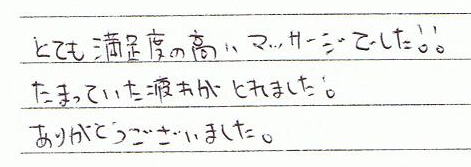 とても満足度の高いマッサージでした!!
たまっていた疲れがとれました!
ありがとうございました。